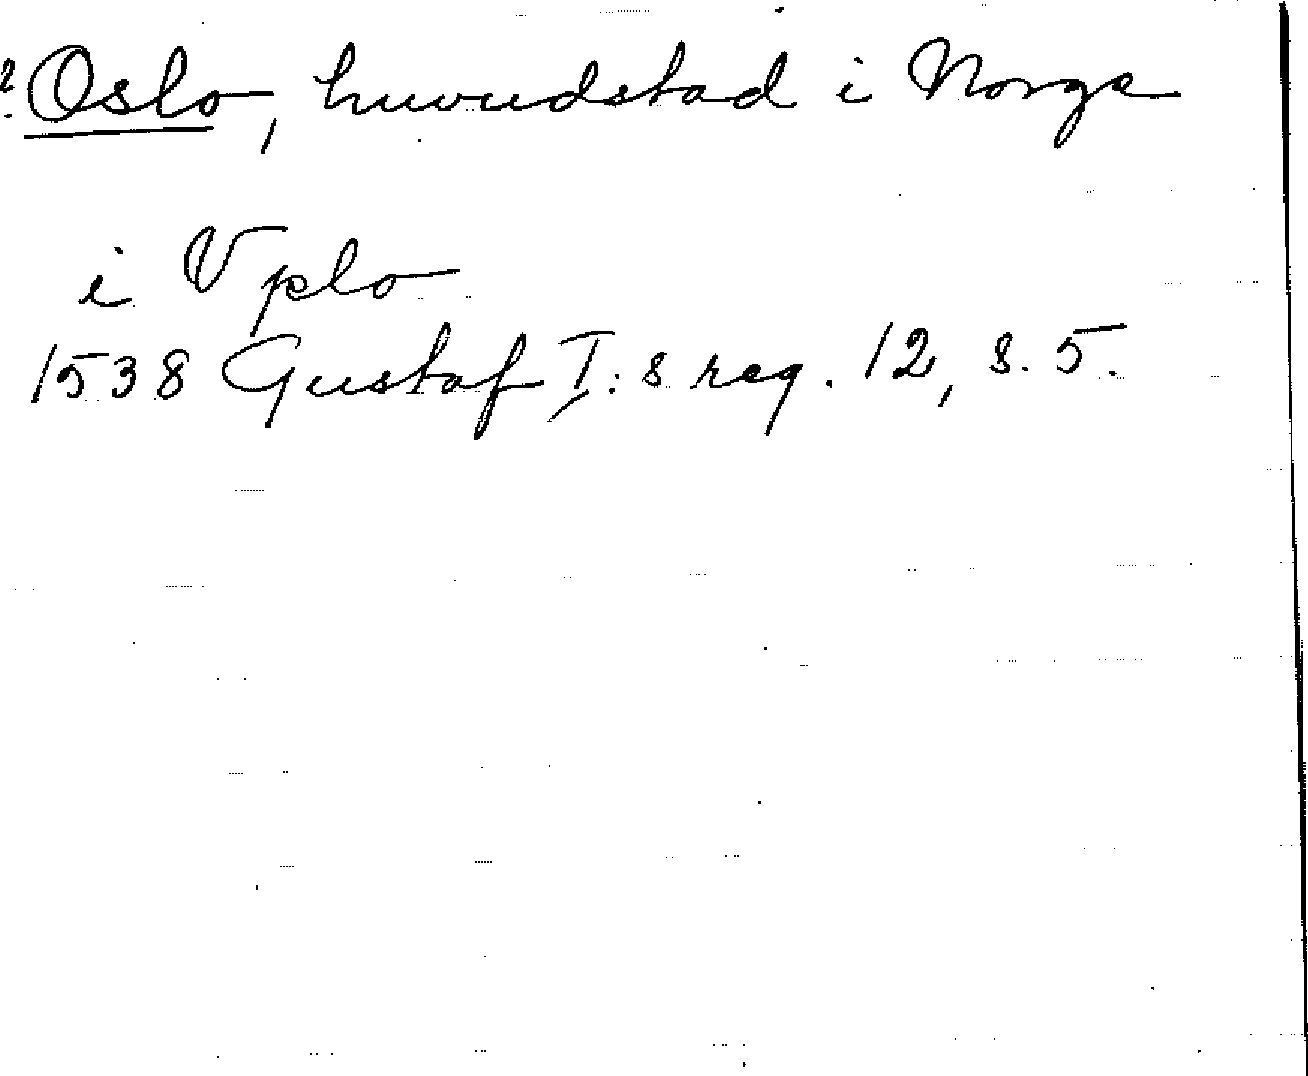 ? Oslo, huvudstad i Norge
i Vplo
1538 Gustaf I:s reg. 12, s. 5.